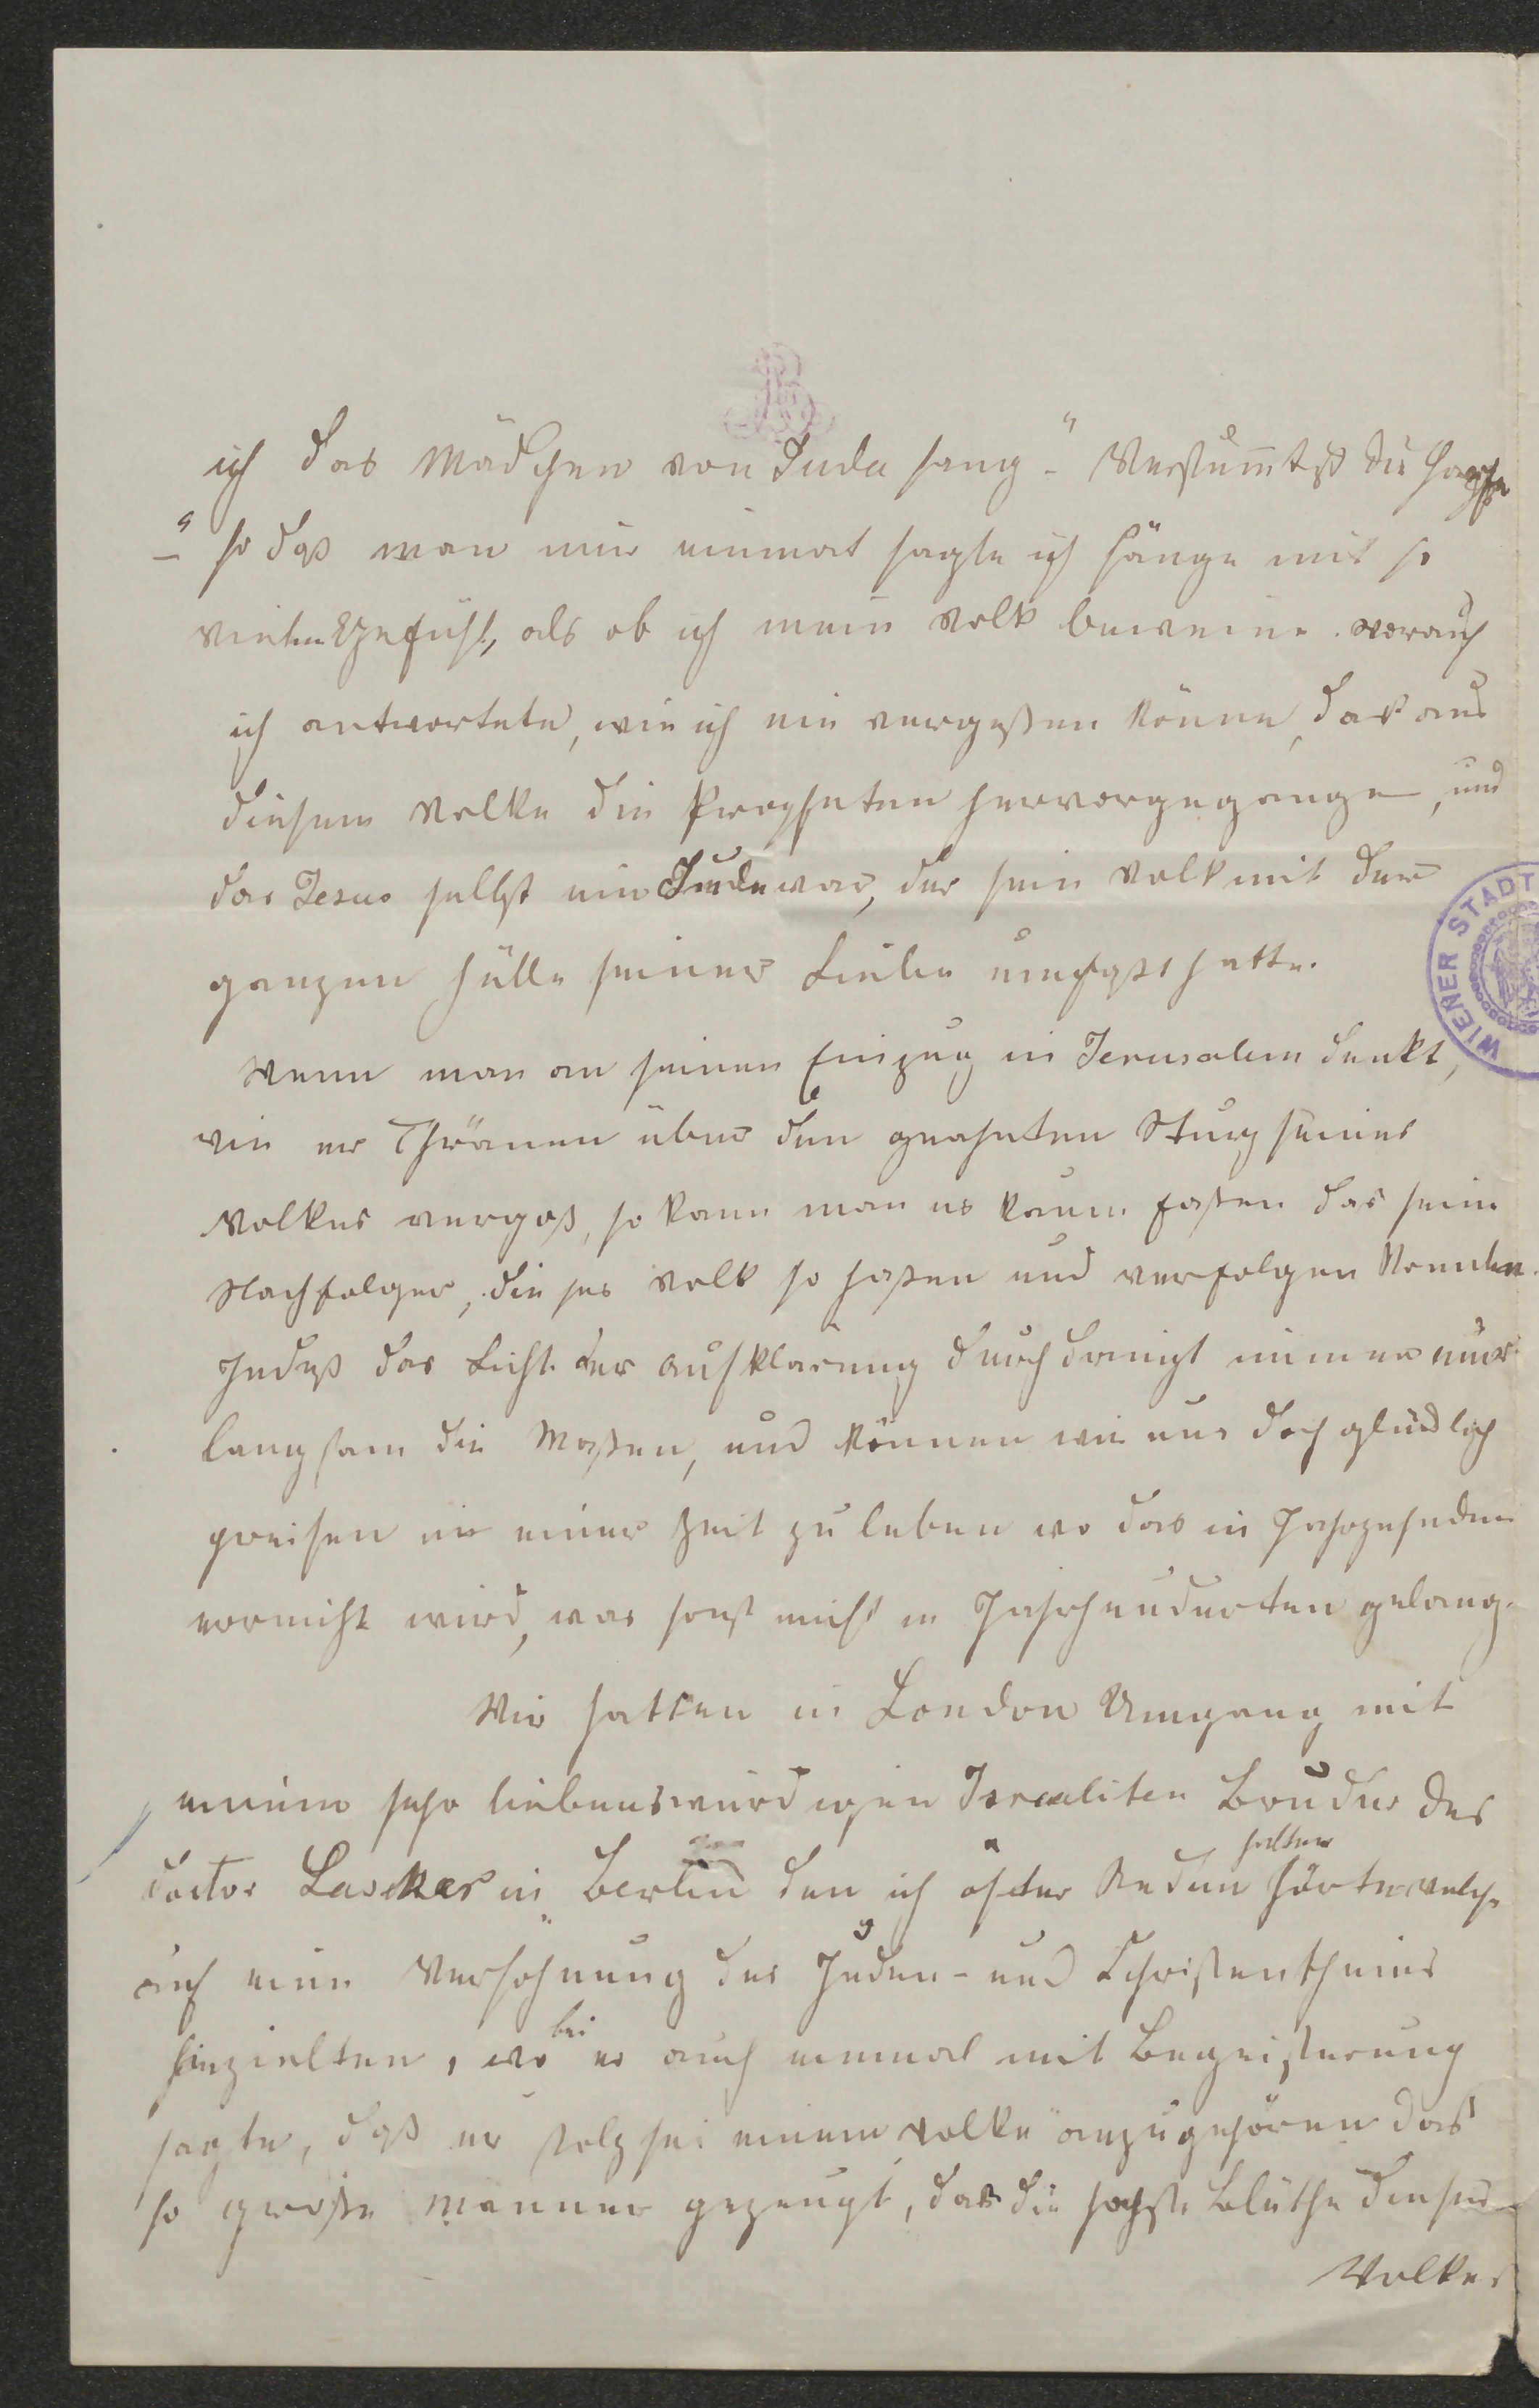 ich das Mädchen von Juda sang „ Verstumtest du Harfe
–“ so daß man mir einmal sagte ich sänge mit so
vielen Gefühl, als ob ich mein Volk beweine. worauf
ich antwortete, wie ich nie vergeßen könne, daß aus
diesem Volke die Propheten hervorgegangen, und
das Jesus selbst ein Jude war, der sein Volk mit der
ganzen Fülle seiner Liebe umfaßt hatte.
Wenn man an seinen Einzug in Jerusalem denkt,
wie er Thränen über den geahnten Sturz seines
Volkes vergoß, so kann man es kaum faßen das seine
Nachfolger, dieses Volk so haßen und verfolgen konnten.
Indeß das Licht der Aufklärung durchdringt immer nur
langsam die Maßen, und können wir uns doch glücklich
preisen in einer Zeit zu leben wo das in Jahrzehnden
erreicht wird, was sonst nicht in Jahrhunderten gelang.
Wir hatten in London Umgang mit
einem sehr liebenswürdigen Israeliten Bruder des
doctor Lasker in Berlin den ich öfter Reden halten hörte welche
auf eine Versöhnung des Juden- und Christenthums
hinzielten, wobei er auch einmal mit Begeisterung
sagte, daß er stolz sei einem Volke anzugehören das
so große Männer gezeugt, das die höchste Blüthe dieses
Volkes
WIENER STADT